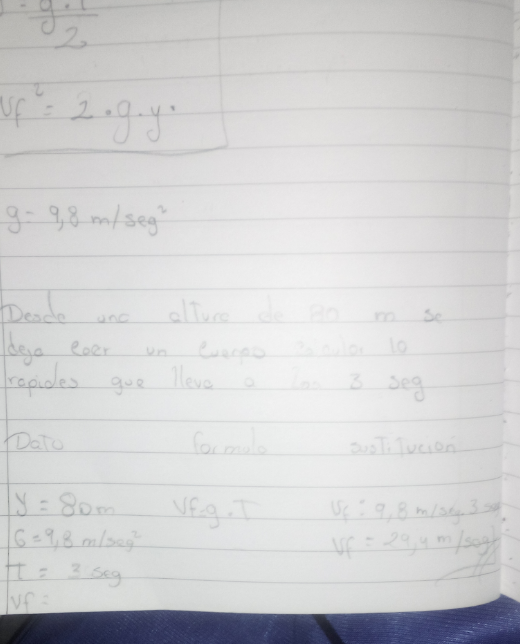 g.t
2
Vf² = 2.g.y.
g= 9,8 m/seg²
Desde una altura de 80 m se
deja caer un cuerpo calcular lo
rapides que lleva a los 3 seg
Dato formula sustitución
y = 80m Vf=g.T Vf = 9,8 m/seg.3 seg
G=9,8 m/seg² Vf = 29,4 m/seg
T = 3 seg
Vf =